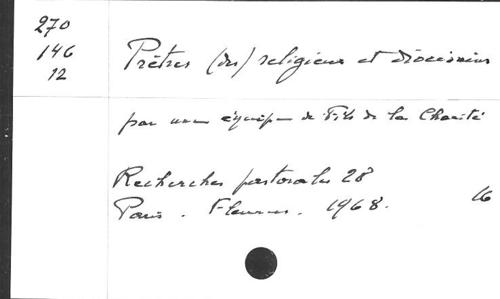 270
146
12
Prêtres (des) religieux et diocésains
par une équipe de Fils de la Charité
Recherches pastorales 28
Paris. Fleurus. 1968. 16